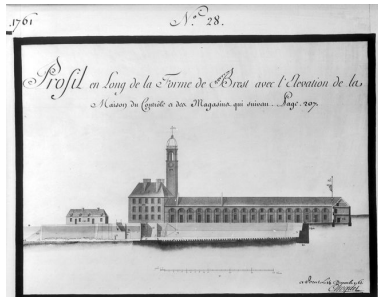 1761 N.º 28.
Profil en Long de la Forme de Brest avec l'Elevation de la
Maison du Contrôle a des Magasins qui suivan. Page. 207.